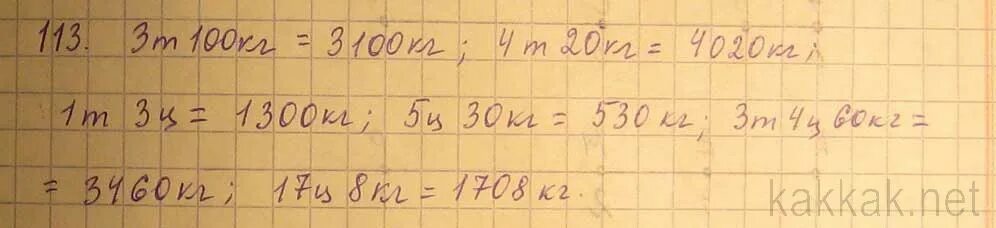 113. 3т 100кг = 3100кг; 4 т 20кг = 4020кг;
1т 3ц = 1300кг; 5ц 30кг = 530 кг; 3т 4ц 60кг =
= 3460кг; 17ц 8кг = 1708 кг.
kakkak.net